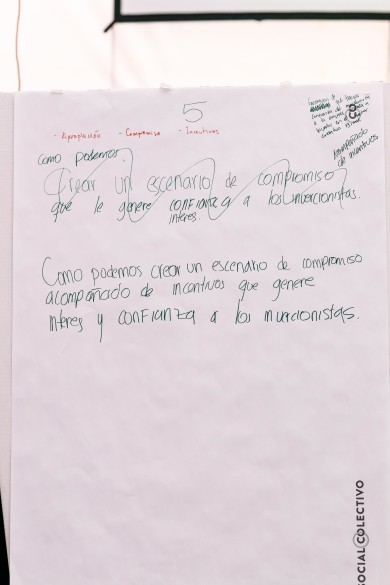 5
- Apropiación - Compromiso - Incentivos
como podemos
Crear un escenario de compromiso
que le genere confianza a los inversionistas.
interes.
acompañado
de incentivos
Como podemos crear un escenario de compromiso
acompañado de incentivos que genere
interes y confianza a los inversionistas.
SOCIAL COLECTIVO
CO